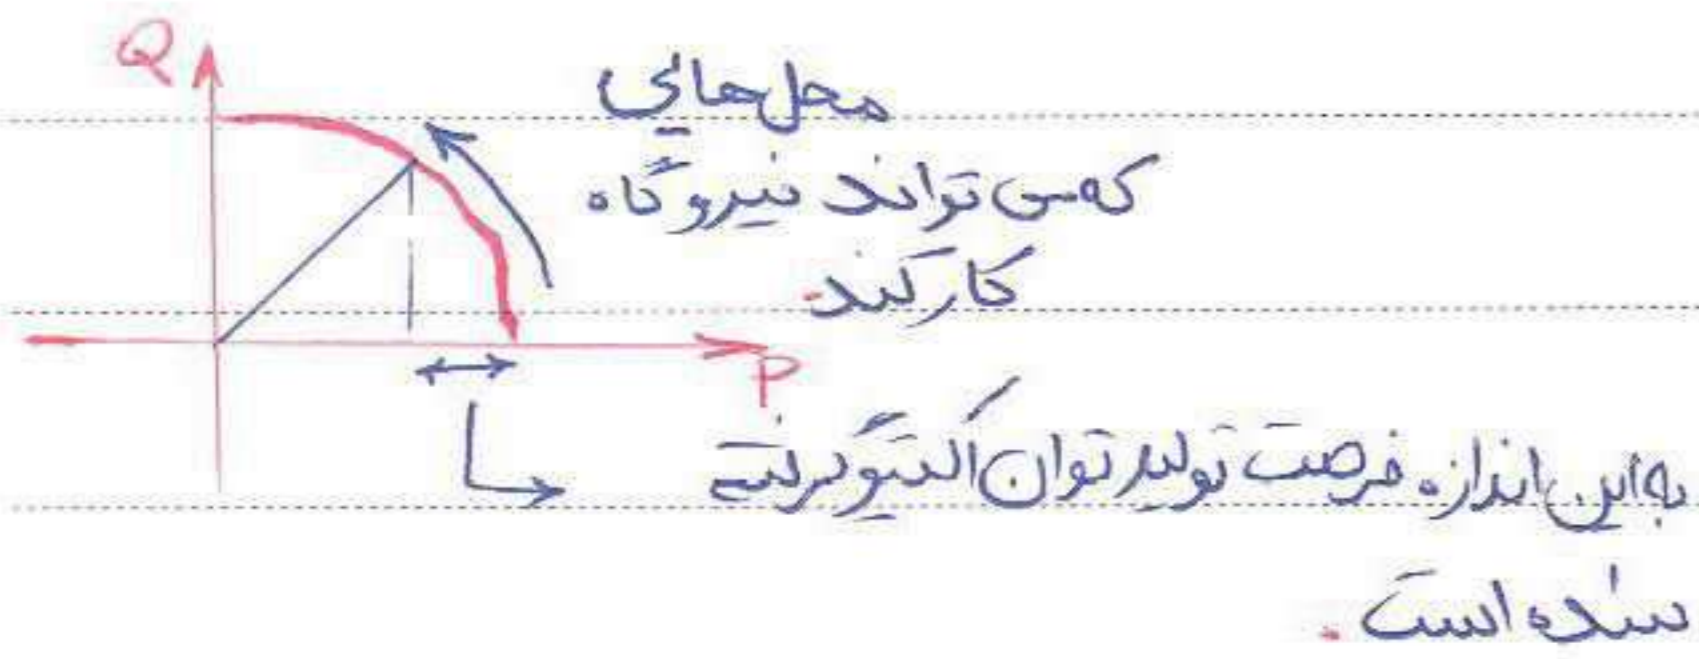 Q
محل‌هایی
که می تواند نیروگاه
کار کند.
P
به این اندازه فرصت تولید توان اکتیو گرفته
شده است.